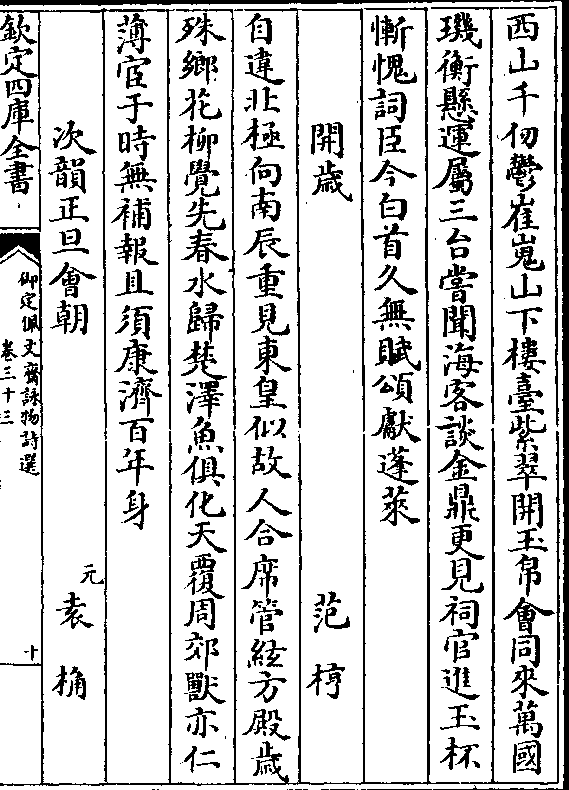 西山千仞鬱崔嵬山下樓臺紫翠開玉帛會同來萬國
璣衡懸運屬三台嘗聞海客談金鼎更見祠官進玉杯
慚愧詞臣今白首久無賦頌獻蓬萊
開歲 范梈
自違北極向南辰重見東皇似故人合席管絃方殿歲
殊鄉花柳覺先春水歸楚澤魚俱化天覆周郊獸亦仁
薄宦于時無補報且須康濟百年身
次韻正旦會朝 元袁桷
欽定四庫全書
御定佩文齋詠物詩選
卷三十三
十